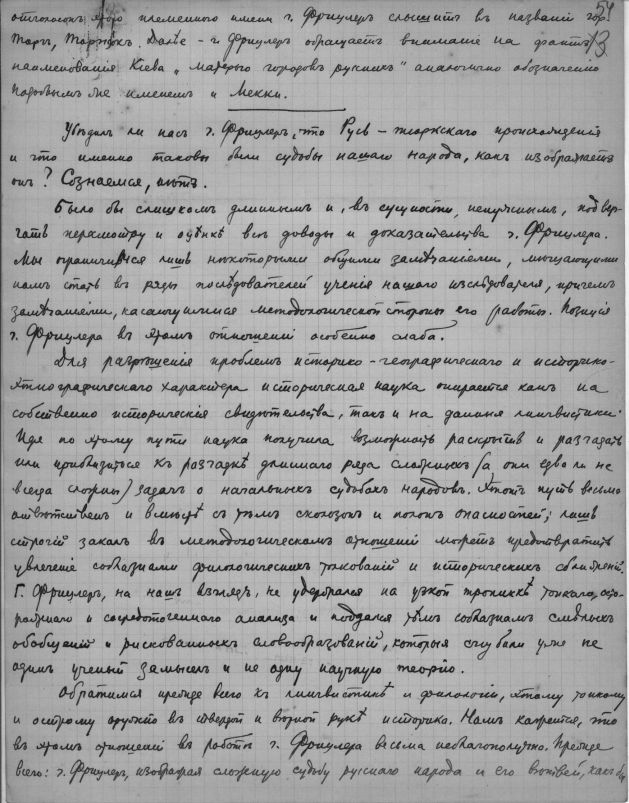 54
отголосокъ этого племеннаго имени г. Фрицлеръ слышитъ въ названіи гор.
Торъ, Торжокъ. Далѣе – г. Фрицлеръ обращаетъ вниманіе на фактъ 13
наименованія Кіева „матерью городовъ русскихъ" аналогично обозначенію
подобнымъ же именемъ и Мекки.
Убѣдилъ ли насъ г. Фрицлеръ, что Русь – тюркскаго происхожденія
и что именно таковы были судьбы нашего народа, какъ изображаетъ
онъ? Сознаемся, нѣтъ.
Было бы слишкомъ длиннымъ и, въ сущности, ненужнымъ, подвер-
гать пересмотру и оцѣнкѣ всѣ доводы и доказательства г. Фрицлера.
Мы ограничимся лишь нѣкоторыми общими замѣчаніями, мѣшающими
намъ стать въ ряды послѣдователей ученія нашего изслѣдователя, причемъ
замѣчаніями, касающимися методологической стороны его работы. Позиція
г. Фрицлера въ этомъ отношеніи особенно слаба.
Для разрѣшенія проблемъ историко-географическаго и историко-
этнографическаго характера историческая наука опирается какъ на
собственно историческія свидѣтельства, такъ и на данныя лингвистики.
Идя по этому пути наука получила возможность раскрытія и разгадать
или приблизиться къ разгадкѣ длиннаго ряда сложныхъ (а они едва ли не
всегда сложны) задачъ о начальныхъ судьбахъ народовъ. Этотъ путь весьма
отвѣтственъ и вмѣстѣ съ тѣмъ скользокъ и полонъ опасностей; лишь
строгій закалъ въ методологическомъ отношеніи можетъ предотвратить
увлеченіе соблазнами филологическихъ толкованій и историческихъ сближеній.
Г. Фрицлеръ, на нашъ взглядъ, не удержался на узкой тропинкѣ тонкаго, осто-
рожнаго и сосредоточеннаго анализа и поддался тѣмъ соблазнамъ смѣлыхъ
обобщеній и рискованныхъ словообразованій, которыя сгубили уже не
одинъ ученый замыселъ и не одну научную теорію.
Обратимся прежде всего къ лингвистикѣ и филологіи, этому тонкому
и острому оружію въ твердой и вѣрной рукѣ историка. Намъ кажется, что
въ этомъ отношеніи въ работѣ г. Фрицлера весьма неблагополучно. Прежде
всего: г. Фрицлеръ, изображая сложную судьбу русскаго народа и его вѣтвей, какъ бы